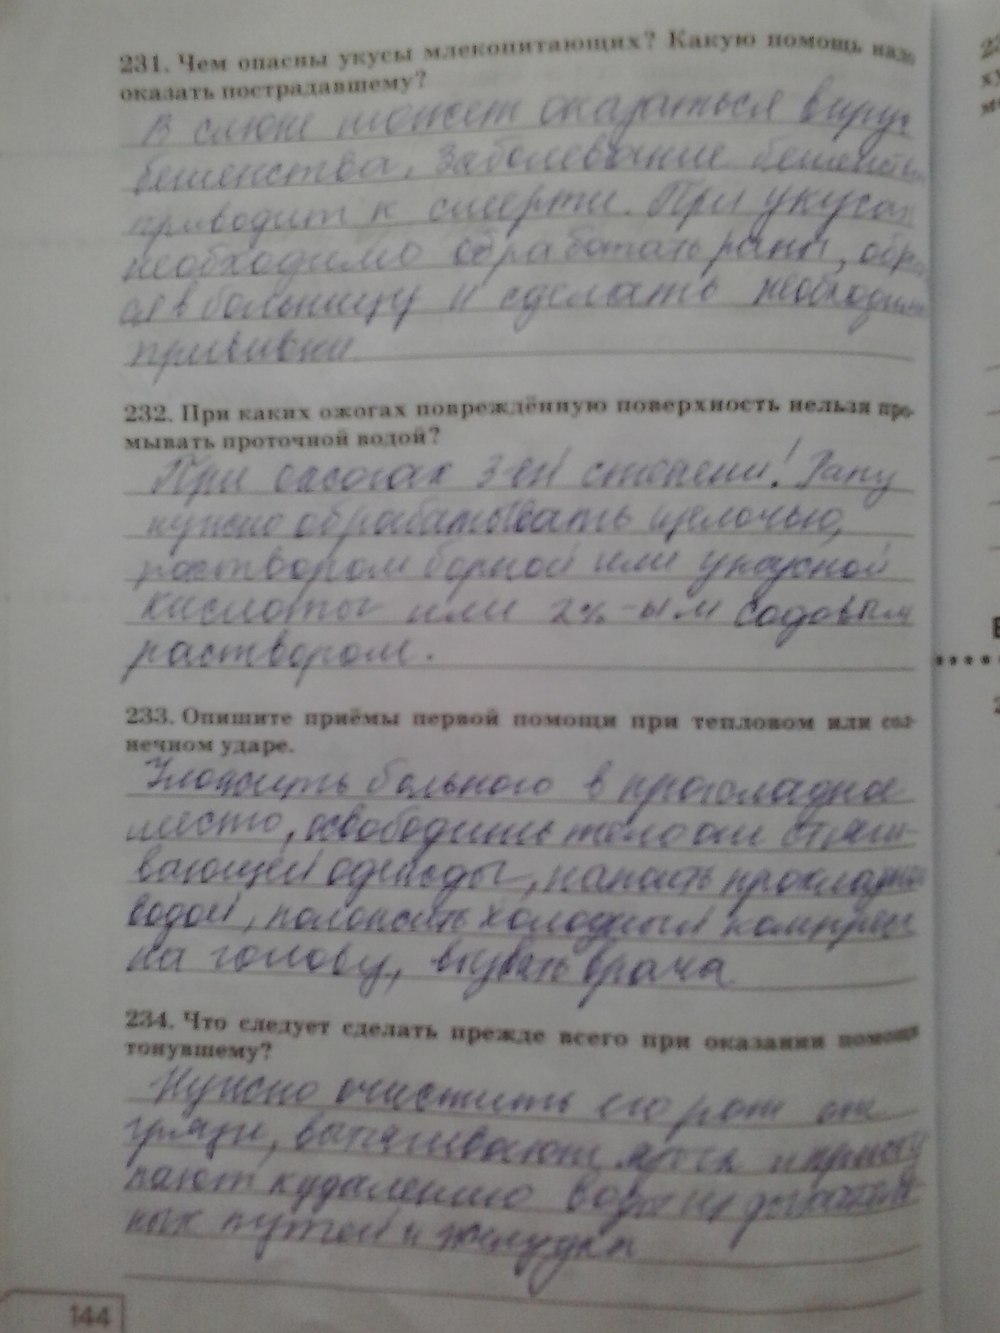 231. Чем опасны укусы млекопитающих? Какую помощь надо
оказать пострадавшему?
В слюне может оказаться вирус
бешенства. Заболевание
приводит к смерти. При укусах
необходимо обработать раны,
в больницу и сделать
прививки
232. При каких ожогах повреждённую поверхность нельзя про-
мывать проточной водой?
При ожогах 3-ей степени! Рану
нужно обрабатывать щелочью,
раствором борной или уксусной
кислоты или 2%-ым содовым
раствором.
233. Опишите приёмы первой помощи при тепловом или сол-
нечном ударе.
Уложить больного в прохладное
место, освободить тело от стяги-
вающей одежды, напоить прохладной
водой, положить холодный компресс
на голову, вызвать врача.
234. Что следует сделать прежде всего при оказании помощи
тонувшему?
Нужно очистить его рот от
грязи, вытягивают язык и присту
пают к удалению воды из дыхатель
ных путей и желудка
144